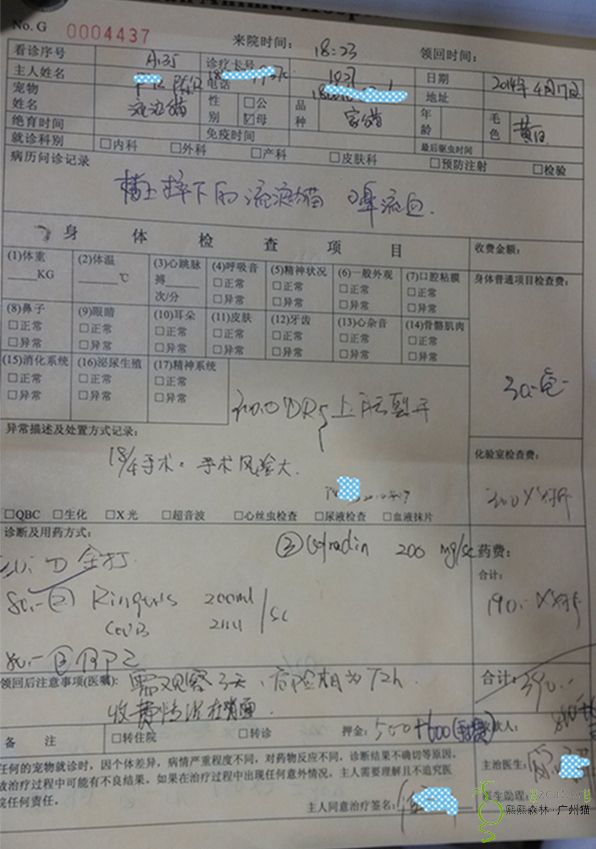 No. G 0004437
来院时间： 18:23 领回时间：
看诊序号 A35 诊疗卡号
主人姓名 电话 地址 日期 2014年4月17日
宠物姓名 流浪猫 性别 □公 ☑母 品种 家猫 年龄 毛色 黄白
绝育时间 免疫时间 最后驱虫时间
就诊科别 □内科 □外科 □产科 □皮肤科 □预防注射 □检验
病历问诊记录
楼上摔下的流浪猫 鼻流血.
身体检查项目 收费金额：
(1)体重 ____KG (2)体温 ____℃ (3)心跳脉搏 ____次/分 (4)呼吸音 □正常 □异常 (5)精神状况 □正常 □异常 (6)一般外观 □正常 □异常 (7)口腔粘膜 □正常 □异常
身体普通项目检查费：
(8)鼻子 □正常 □异常 (9)眼睛 □正常 □异常 (10)耳朵 □正常 □异常 (11)皮肤 □正常 □异常 (12)牙齿 □正常 □异常 (13)心杂音 □正常 □异常 (14)骨骼肌肉 □正常 □异常
(15)消化系统 □正常 □异常 (16)泌尿生殖 □正常 □异常 (17)精神系统 □正常 □异常
上颚裂开
异常描述及处置方式记录：
18/4手术. 手术风险大.
化验室检查费：
□QBC □生化 □X光 □超音波 □心丝虫检查 □尿液检查 □血液抹片
诊断及用药方式：
200 mg/sc
药费：
合计：
80.- ② Ringer's 200ml /sc
190.-
80.- ③
合计： 390.-
领回后注意事项(医嘱)： 需观察3天, 危险期为72h
收费情况在背面
备注 □转住院 □转诊 押金： 500+600
任何的宠物就诊时，因个体差异，病情严重程度不同，对药物反应不同，诊断结果不确切等原因，
故治疗过程中可能有不良结果，如果在治疗过程中出现任何意外情况，主人需要理解且不追究医
院任何责任。
主治医生：
主人同意治疗签名：
医生助理：
熙熙森林—广州猫